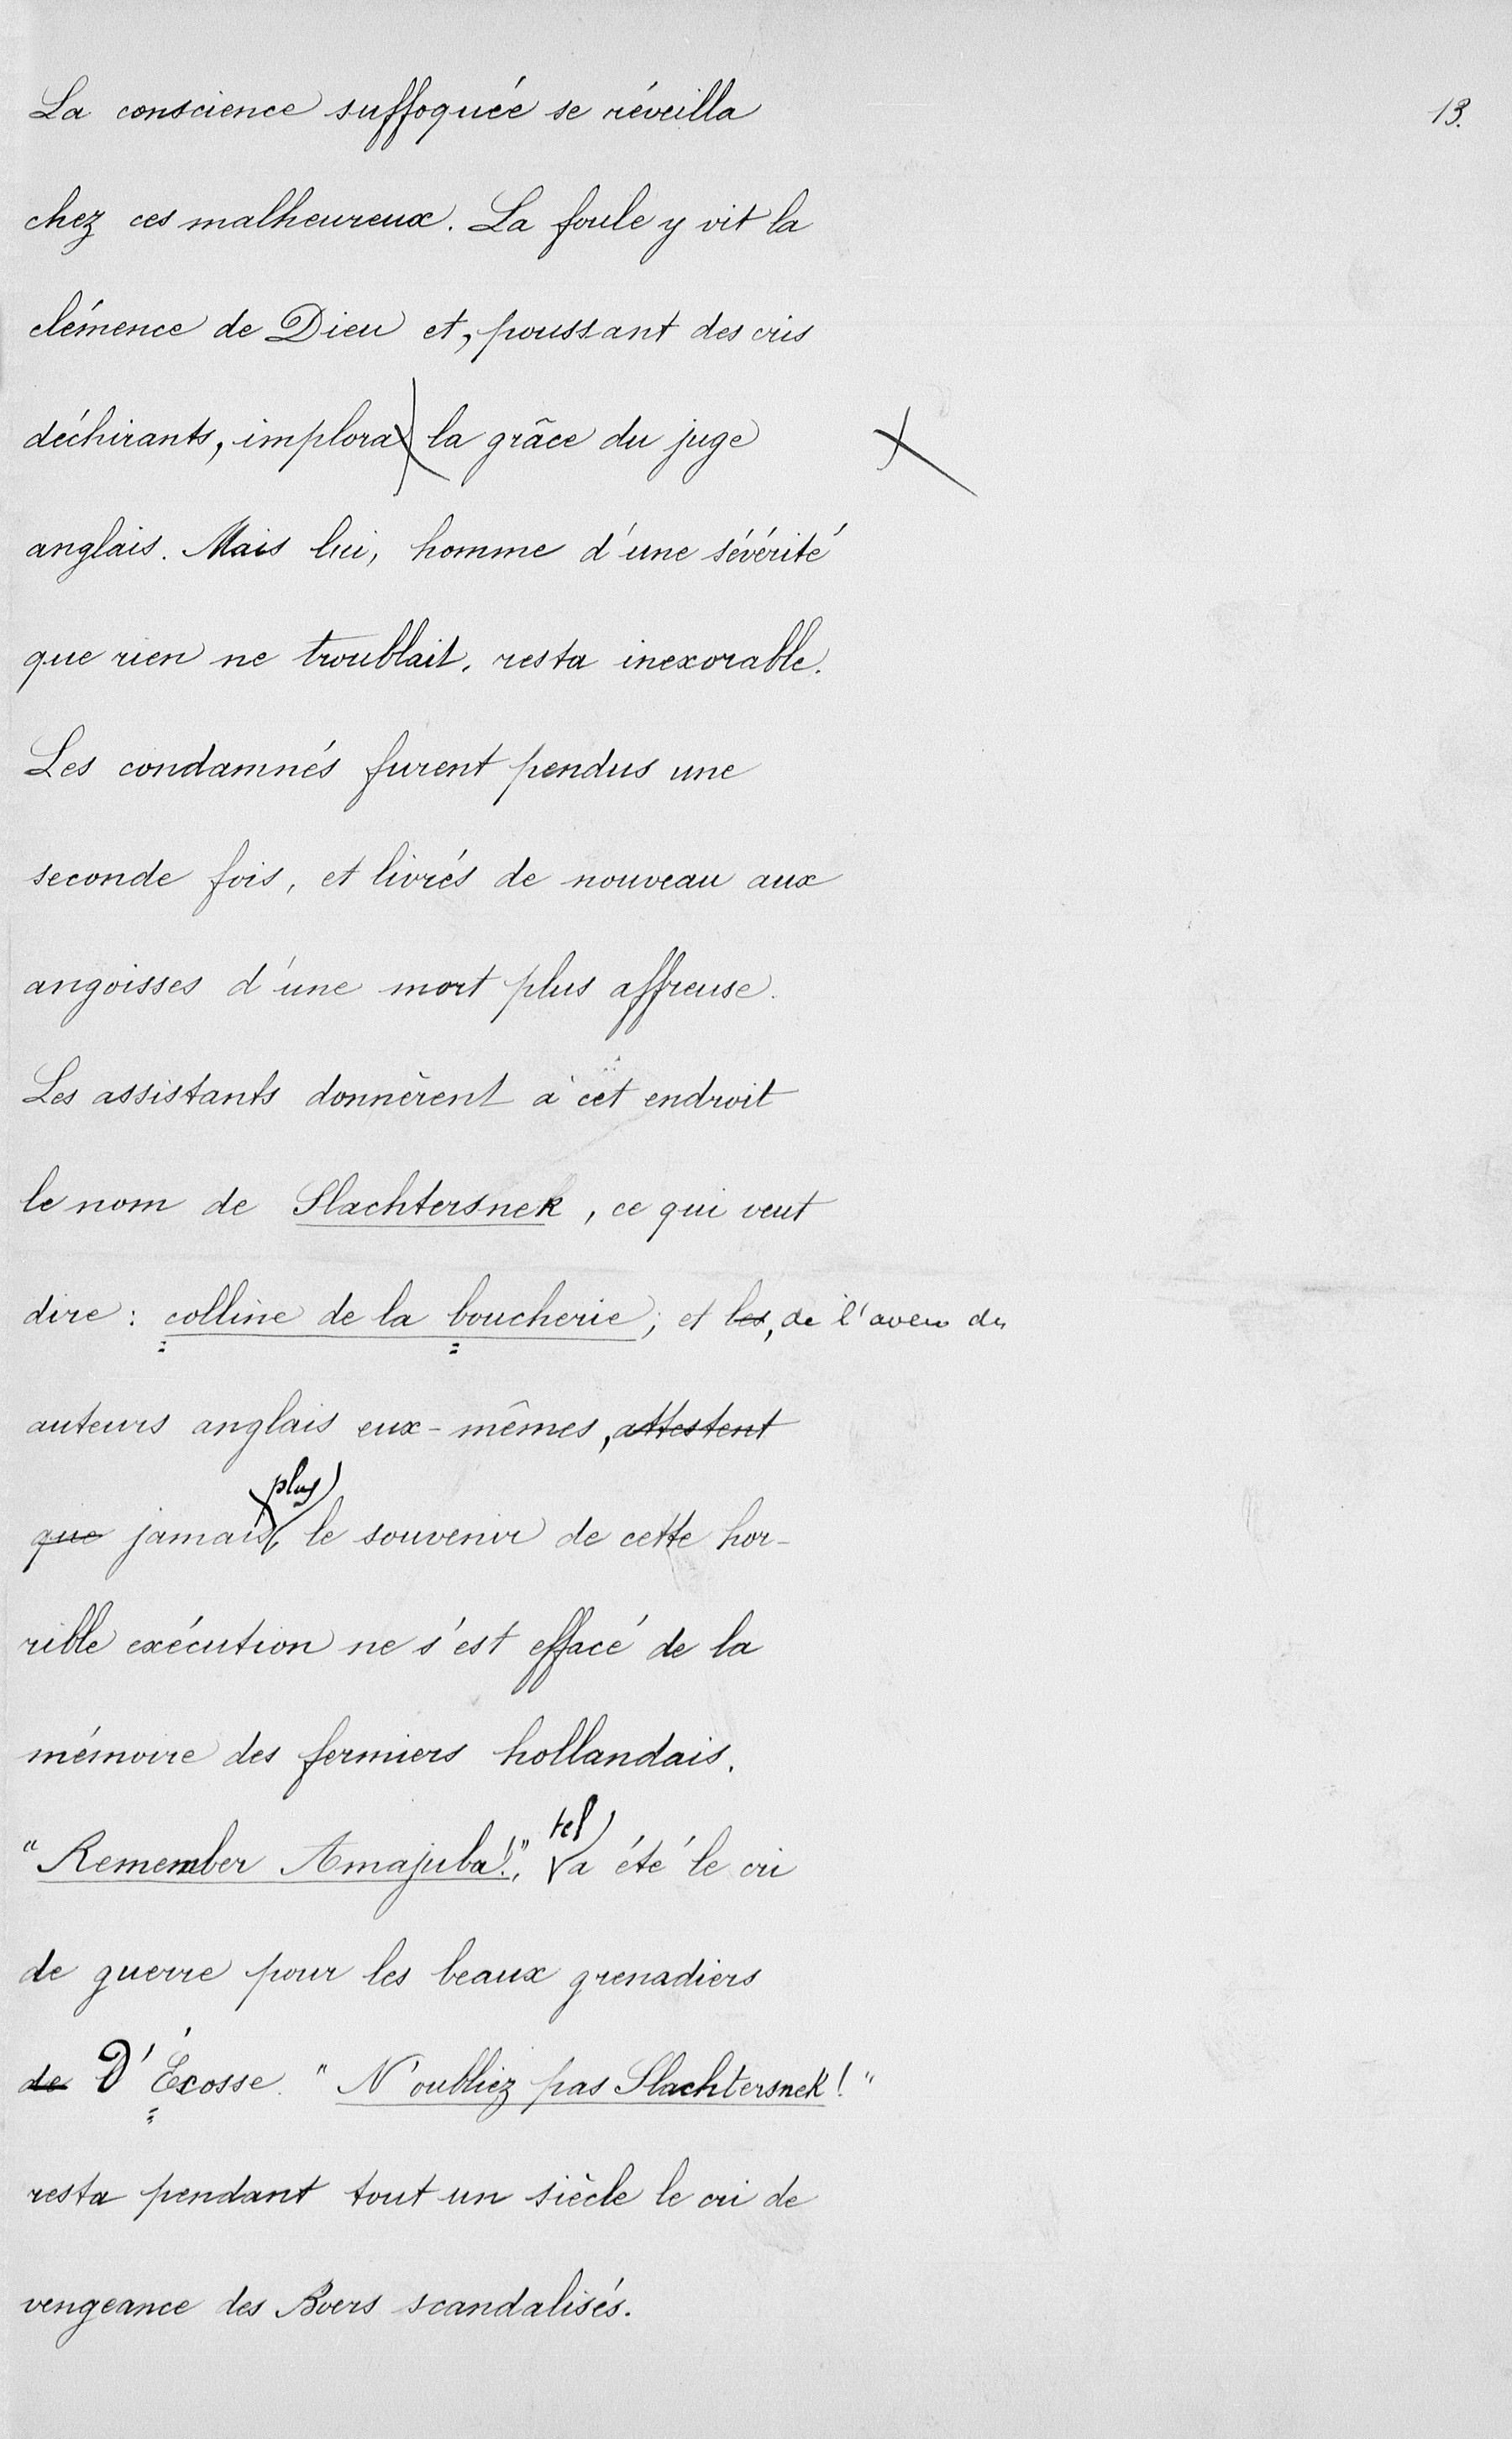 13.
La conscience suffoquée se réveilla
chez ces malheureux. La foule y vit la
clémence de Dieu et, poussant des cris
déchirants, implora la grâce du juge
anglais. Mais lui, homme d'une sévérité
que rien ne troublait, resta inexorable.
Les condamnés furent pendus une
seconde fois, et livrés de nouveau aux
angoisses d'une mort plus affreuse.
Les assistants donnèrent à cet endroit
le nom de Slachtersnek, ce qui veut
dire: colline de la boucherie; et les, de l'aveu des
auteurs anglais eux-mêmes, attestent
plus
que jamais, le souvenir de cette hor-
rible exécution ne s'est effacé de la
mémoire des fermiers hollandais.
tel
"Remember Amajuba!", a été le cri
de guerre pour les beaux grenadiers
de D'Écosse. "N'oubliez pas Slachtersnek!"
resta pendant tout un siècle le cri de
vengeance des Boers scandalisés.